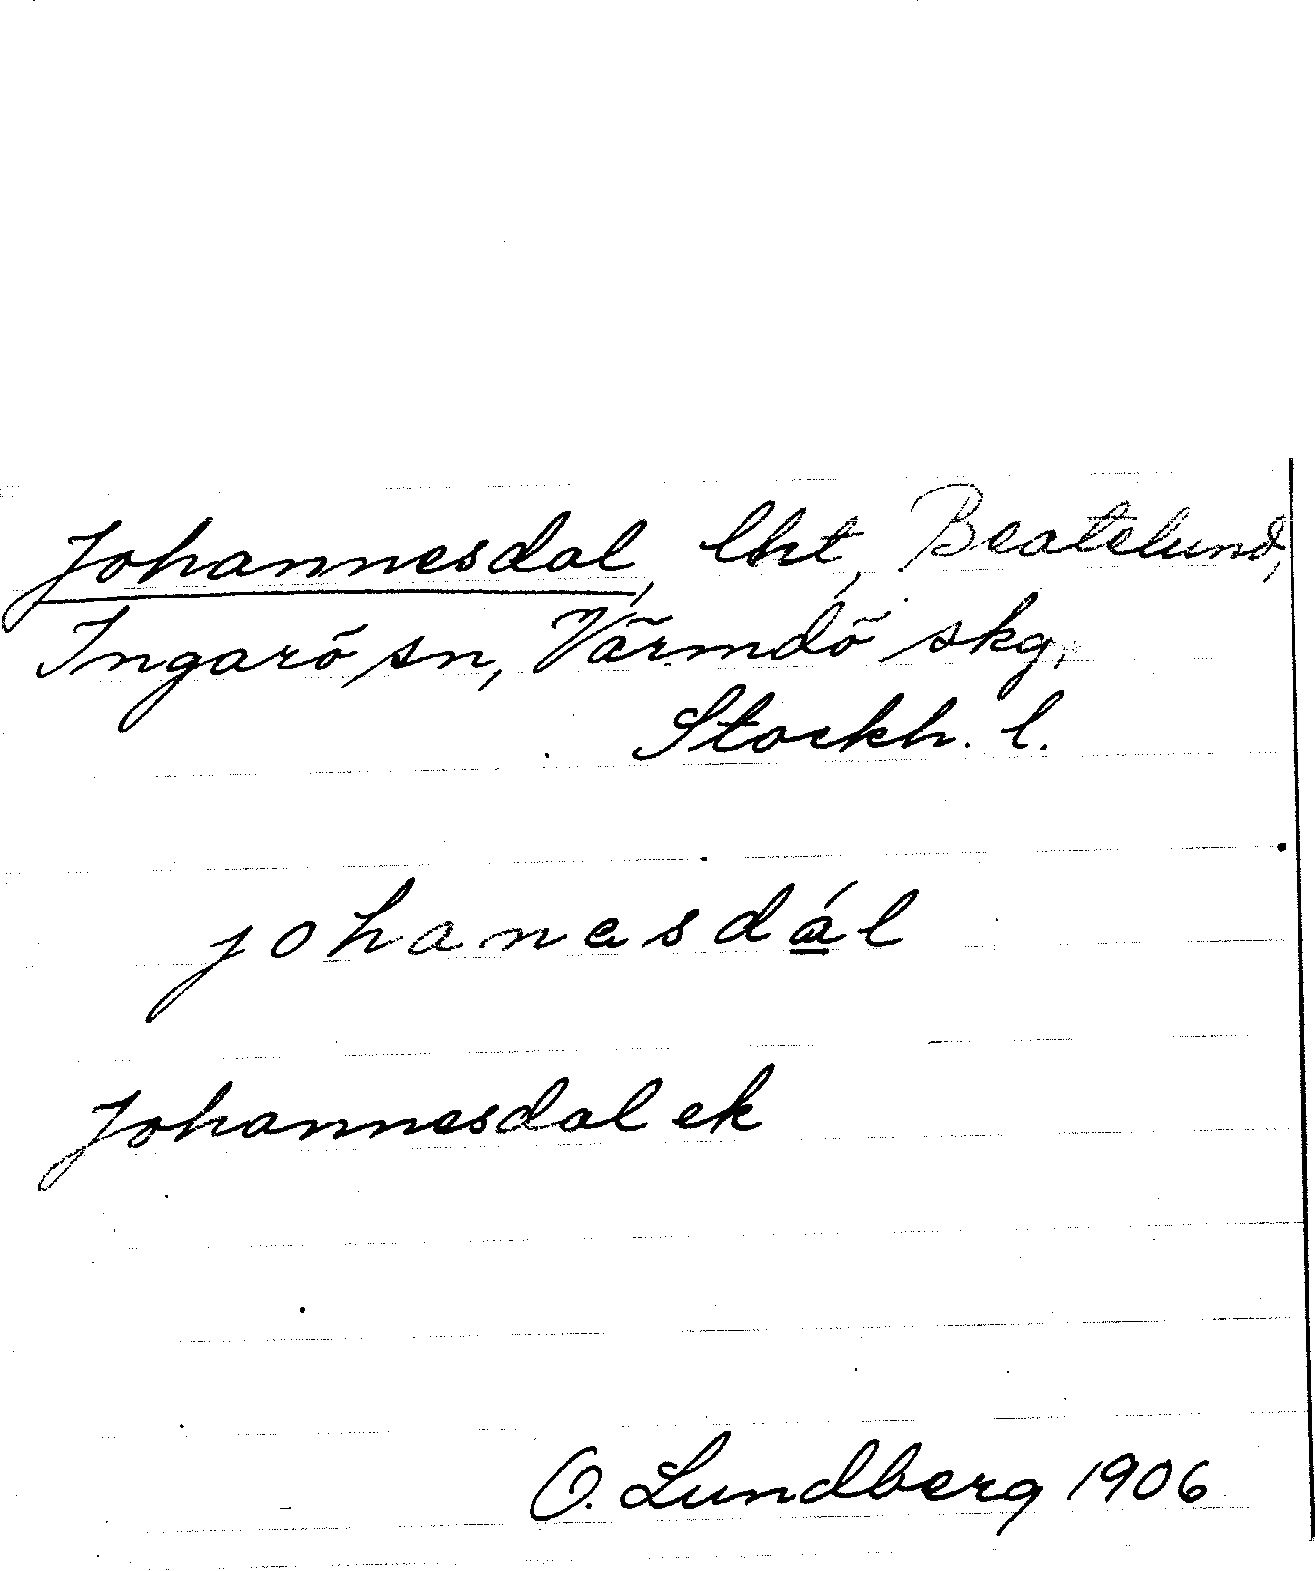 Johannesdal, lht, Beatelund,
Ingarö sn, Värmdö skg,
Stockh. l.
johanesdál
Johannesdal ek
O. Lundberg 1906